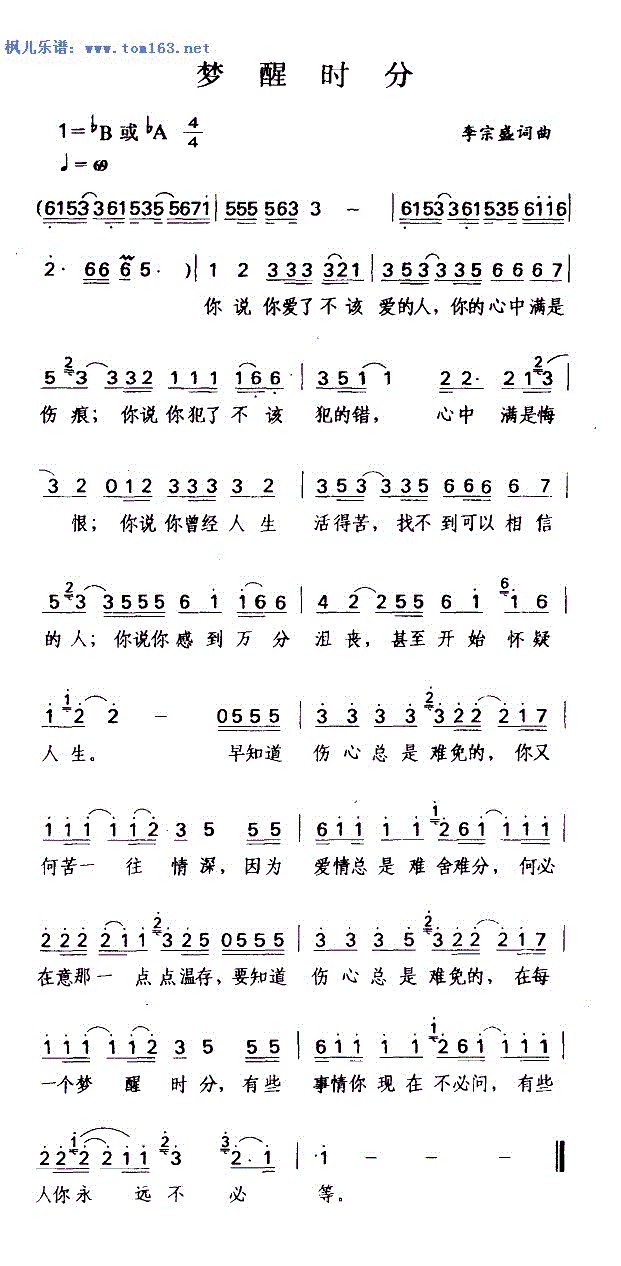 枫儿乐谱：www.tom163.net
梦醒时分
1=♭B或♭A 4/4
李宗盛词曲
(6153361535567i | 555 563 3 – | 61533615356116 |
2· 66 6 5· ) | 1 2 333 321 | 353335 666 67
你说你爱了不该 爱的人，你的心中满是
5 2 3 332 111 166 | 3511 22· 21 2 3 |
伤痕；你说你犯了不该 犯的错， 心中 满是悔
3 2 012 333 3 2 | 353 335 666 6 7 |
恨；你说你曾经人生 活得苦，找不到可以相信
5 2 3 3555 6 1 166 | 4 2 255 6 1 6 1 6 |
的人；你说你感到万分 沮丧，甚至开始怀疑
1 1 2 2 – 0555 | 3 3 3 3 2 322 217 |
人生。 早知道 伤心总是难免的，你又
111 112 3 5 55 | 611 1 1 1 261 111 |
何苦一 往 情深，因为 爱情总是难舍难分，何必
222 211 2 325 0555 | 3 3 3 3 2 322 217 |
在意那一点点温存，要知道 伤心总是难免的，在每
111 112 3 5 55 | 611 1 1 1 261 111 |
一个梦 醒 时分，有些 事情你现在不必问，有些
22 1 2 211 2 3 3 2·1 | 1 – – – ‖
人你永 远不 必 等。